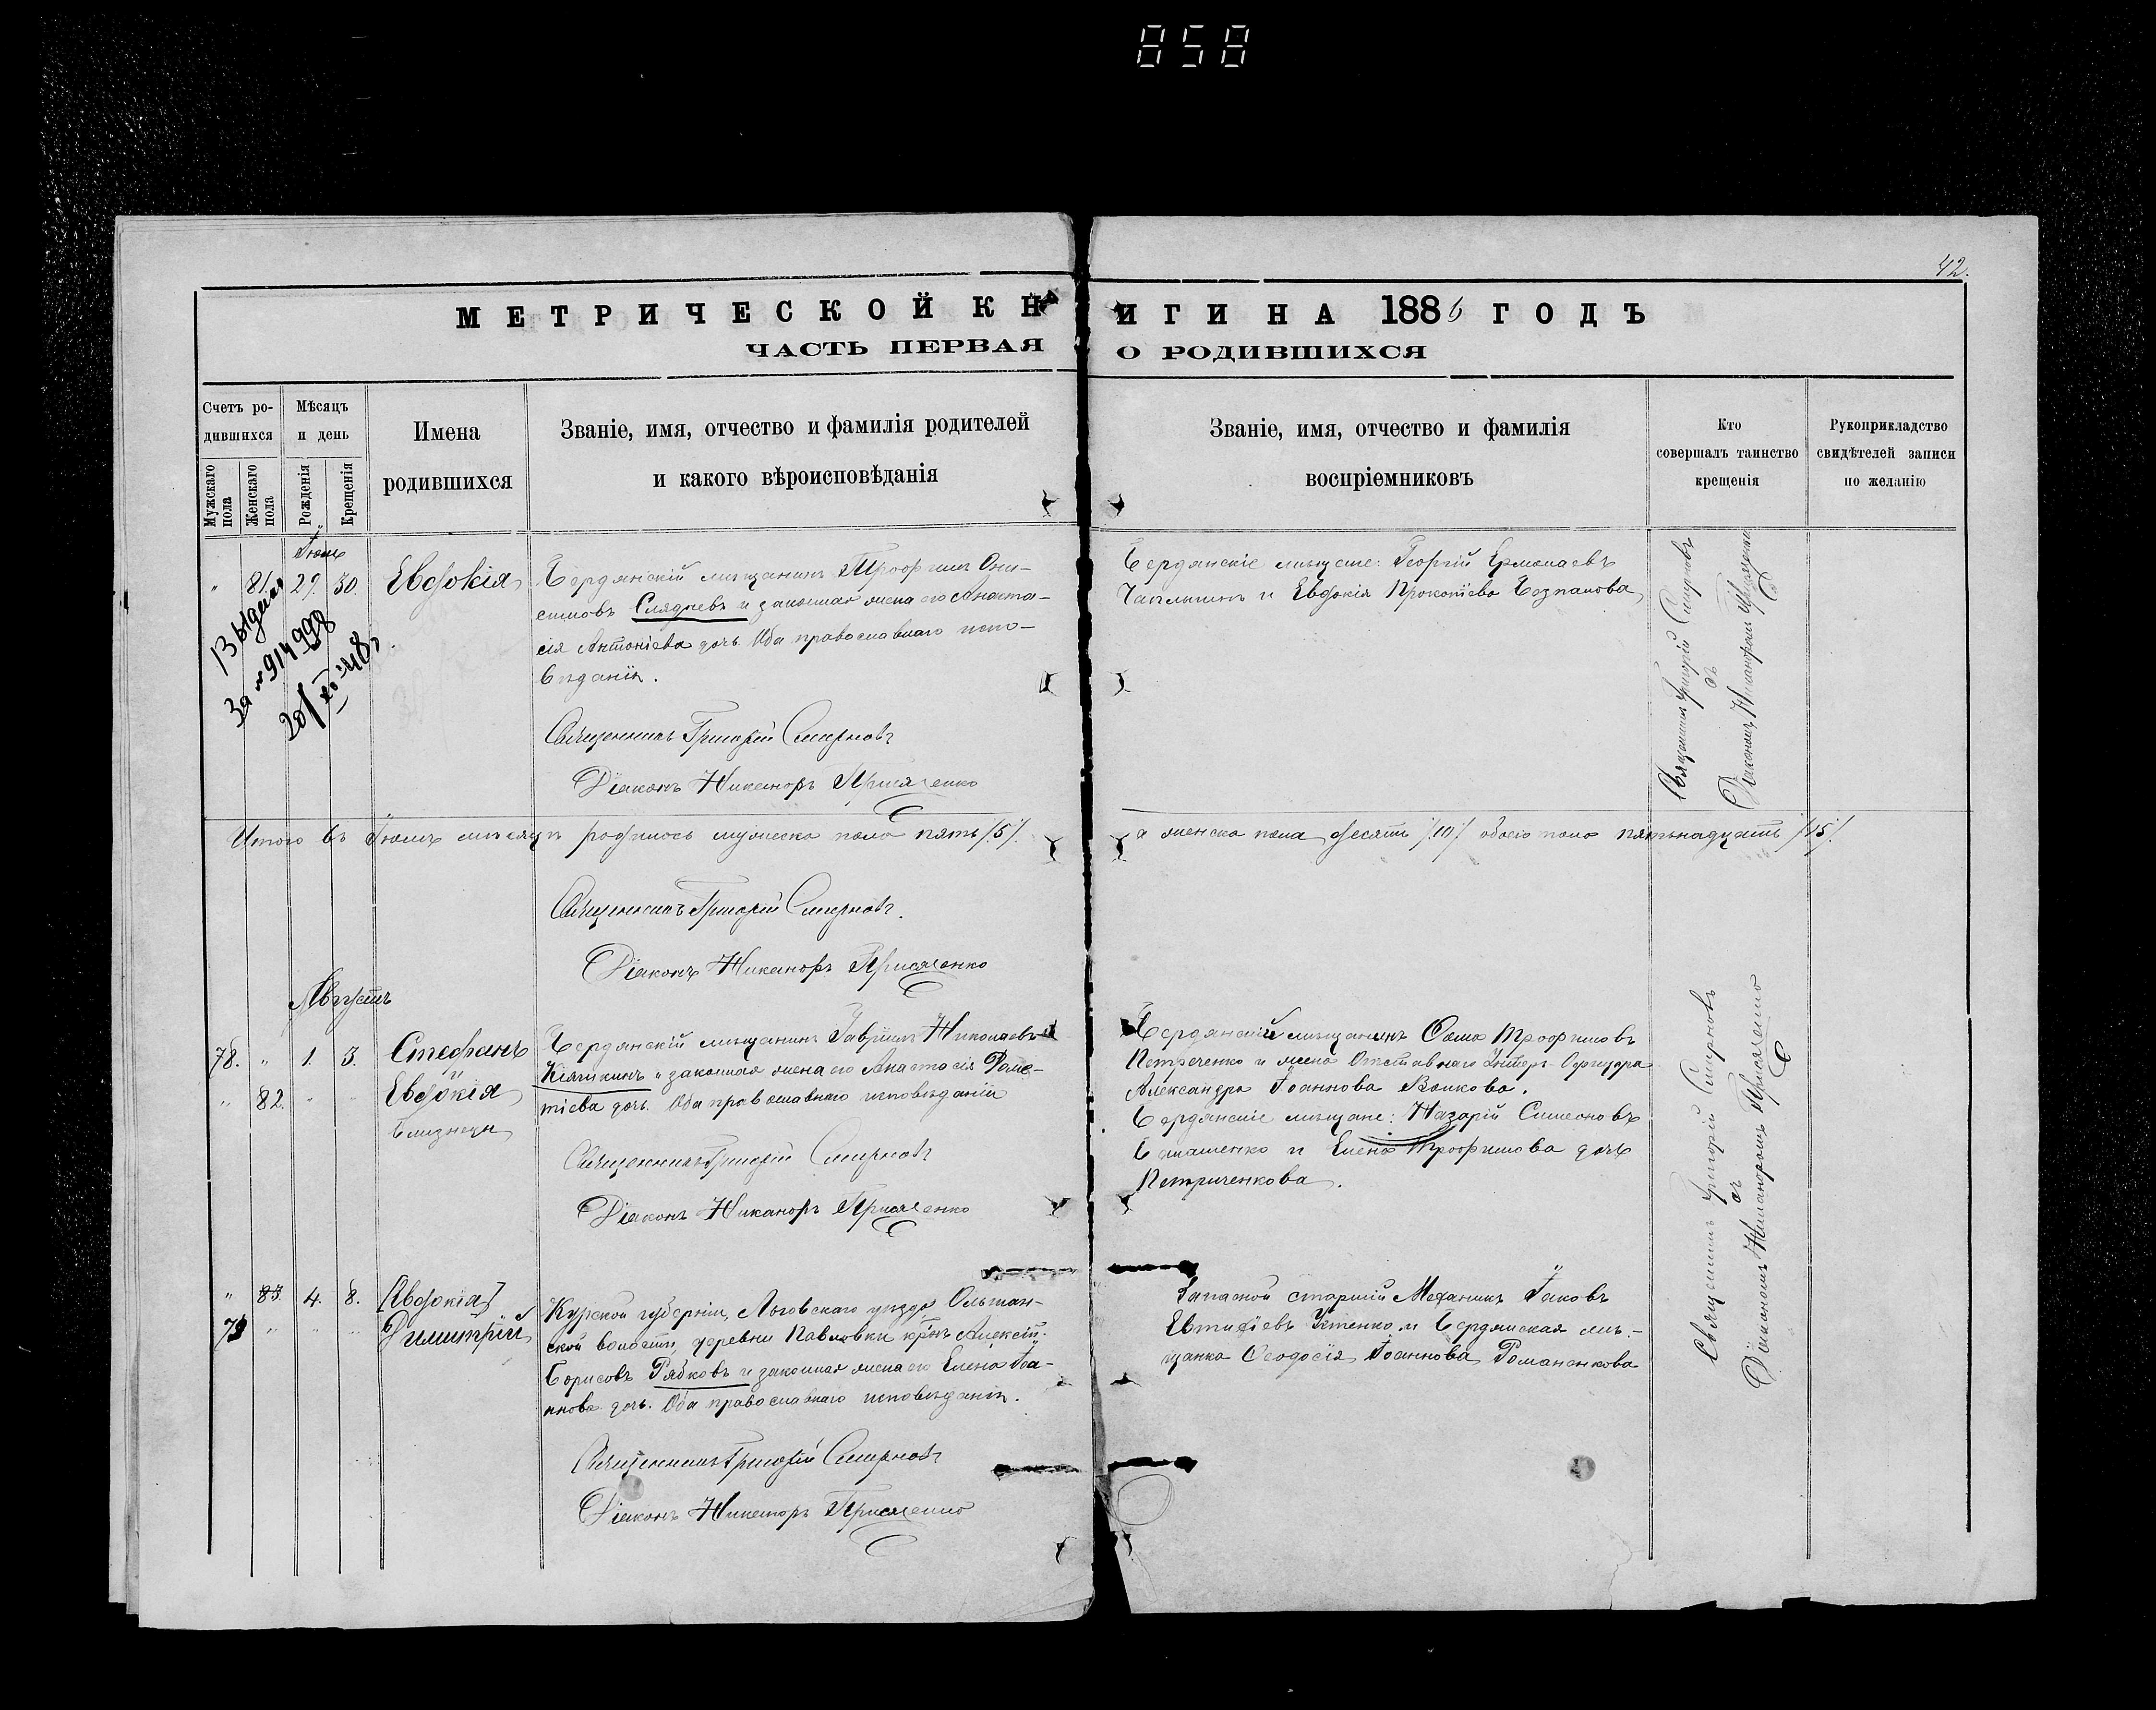 858
42.
МЕТРИЧЕСКОЙ КНИГИ НА 1886 ГОДЪ
ЧАСТЬ ПЕРВАЯ О РОДИВШИХСЯ
Счетъ ро-
дившихся
Мужскаго пола
Женскаго пола
Мѣсяцъ
и день
Рожденія
Крещенія
Имена
родившихся
Званіе, имя, отчество и фамилія родителей
и какого вѣроисповѣданія
Званіе, имя, отчество и фамилія
воспріемниковъ
Кто
совершалъ таинство
крещенія
Рукоприкладство
свидѣтелей записи
по желанію
" 81. 29. 30. Евдокія
Бердянскій мѣщанинъ Трофимъ Они-
симовъ Слядневъ и законная жена его Анаста-
сія Антонієва дочь. Оба православнаго испо-
вѣданія.
Священникъ Григорій Смирновъ
Діаконъ Никаноръ Присяженко
Бердянскіе мѣщане: Георгій Ермолаевъ
и Евдокія Прокопіева
Священникъ Григорій Смирновъ
съ
Діакономъ Никаноромъ Присяженко
Итого въ Іюлѣ мѣсяцѣ родилось мужеска пола пять /5/.
а женска пола десять /10/ обоего пола пятьнадцать /15/.
Священникъ Григорій Смирновъ.
Діаконъ Никаноръ Присяженко
Августъ
78. " 1. 3. Стефанъ
и
" 82. " " Евдокія
близнецы
Бердянскій мѣщанинъ Гавріилъ Николаевъ
и законная жена его Анастасія
дочь. Оба православнаго исповѣданія
Священникъ Григорій Смирновъ
Діаконъ Никаноръ Присяженко
Бердянскій мѣщанинъ Ѳома Трофимовъ
Петриченко и жена Отставнаго Унтеръ-Офицера
Александра Іоаннова Волкова.
Бердянскіе мѣщане: Назарій Симеоновъ
и Елена Трофимова дочь
Петриченкова.
" 83. 4. 8. [Евдокія]
79 " " " Димитрій
Курской губерніи, Льговскаго уѣзда Ольшан-
ской волости, деревни Павловки кр-нъ Алексій
Борисовъ Рябковъ и законная жена его Елена Іоа-
ннова дочь. Оба православнаго исповѣданія.
Священникъ Григорій Смирновъ
Діаконъ Никаноръ Присяженко
Запасной старшій Механикъ Іаковъ
Евтихіевъ и Бердянская мѣ-
щанка Ѳеодосія Іоаннова Романенкова
Священникъ Григорій Смирновъ
съ
Діакономъ Никаноромъ Присяженко